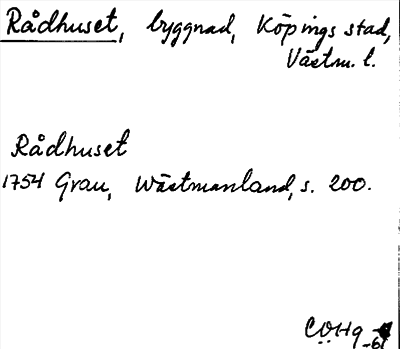 Rådhuset, byggnad, Köpings stad,
Västm. l.
Rådhuset
1754 Grau, Wästmanland, s. 200.